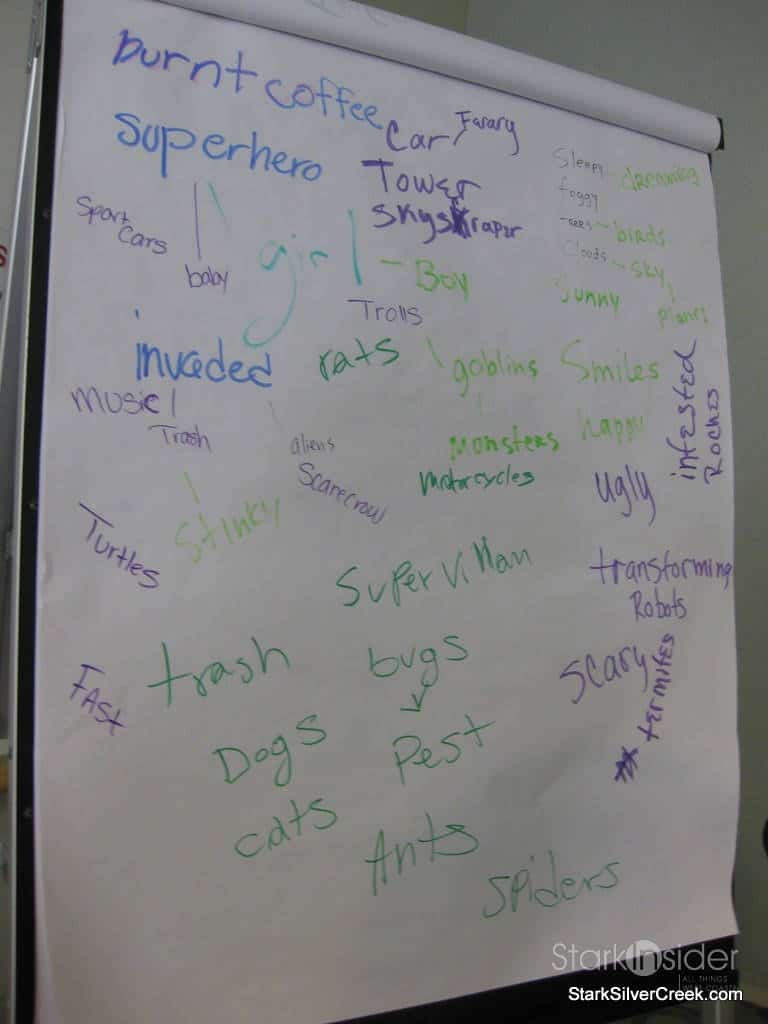 burnt coffee
superhero
Car
Farary
Tower
skyskraper
Sleepy - dreaming
foggy
Trees - birds
Clouds - sky
planes
Sunny
Sport
Cars
baby
girl - Boy
Trolls
invaded
rats
goblins
Smiles
happy
infested
Roches
music
Trash
aliens
Scarecrow
monsters
motorcycles
ugly
Stinky
Turtles
Super Villan
transforming
Robots
trash
bugs
Scary
termites
Fast
Dogs
Pest
cats
Ants
Spiders
StarkInsider
ALL THINGS
StarkSilverCreek.com